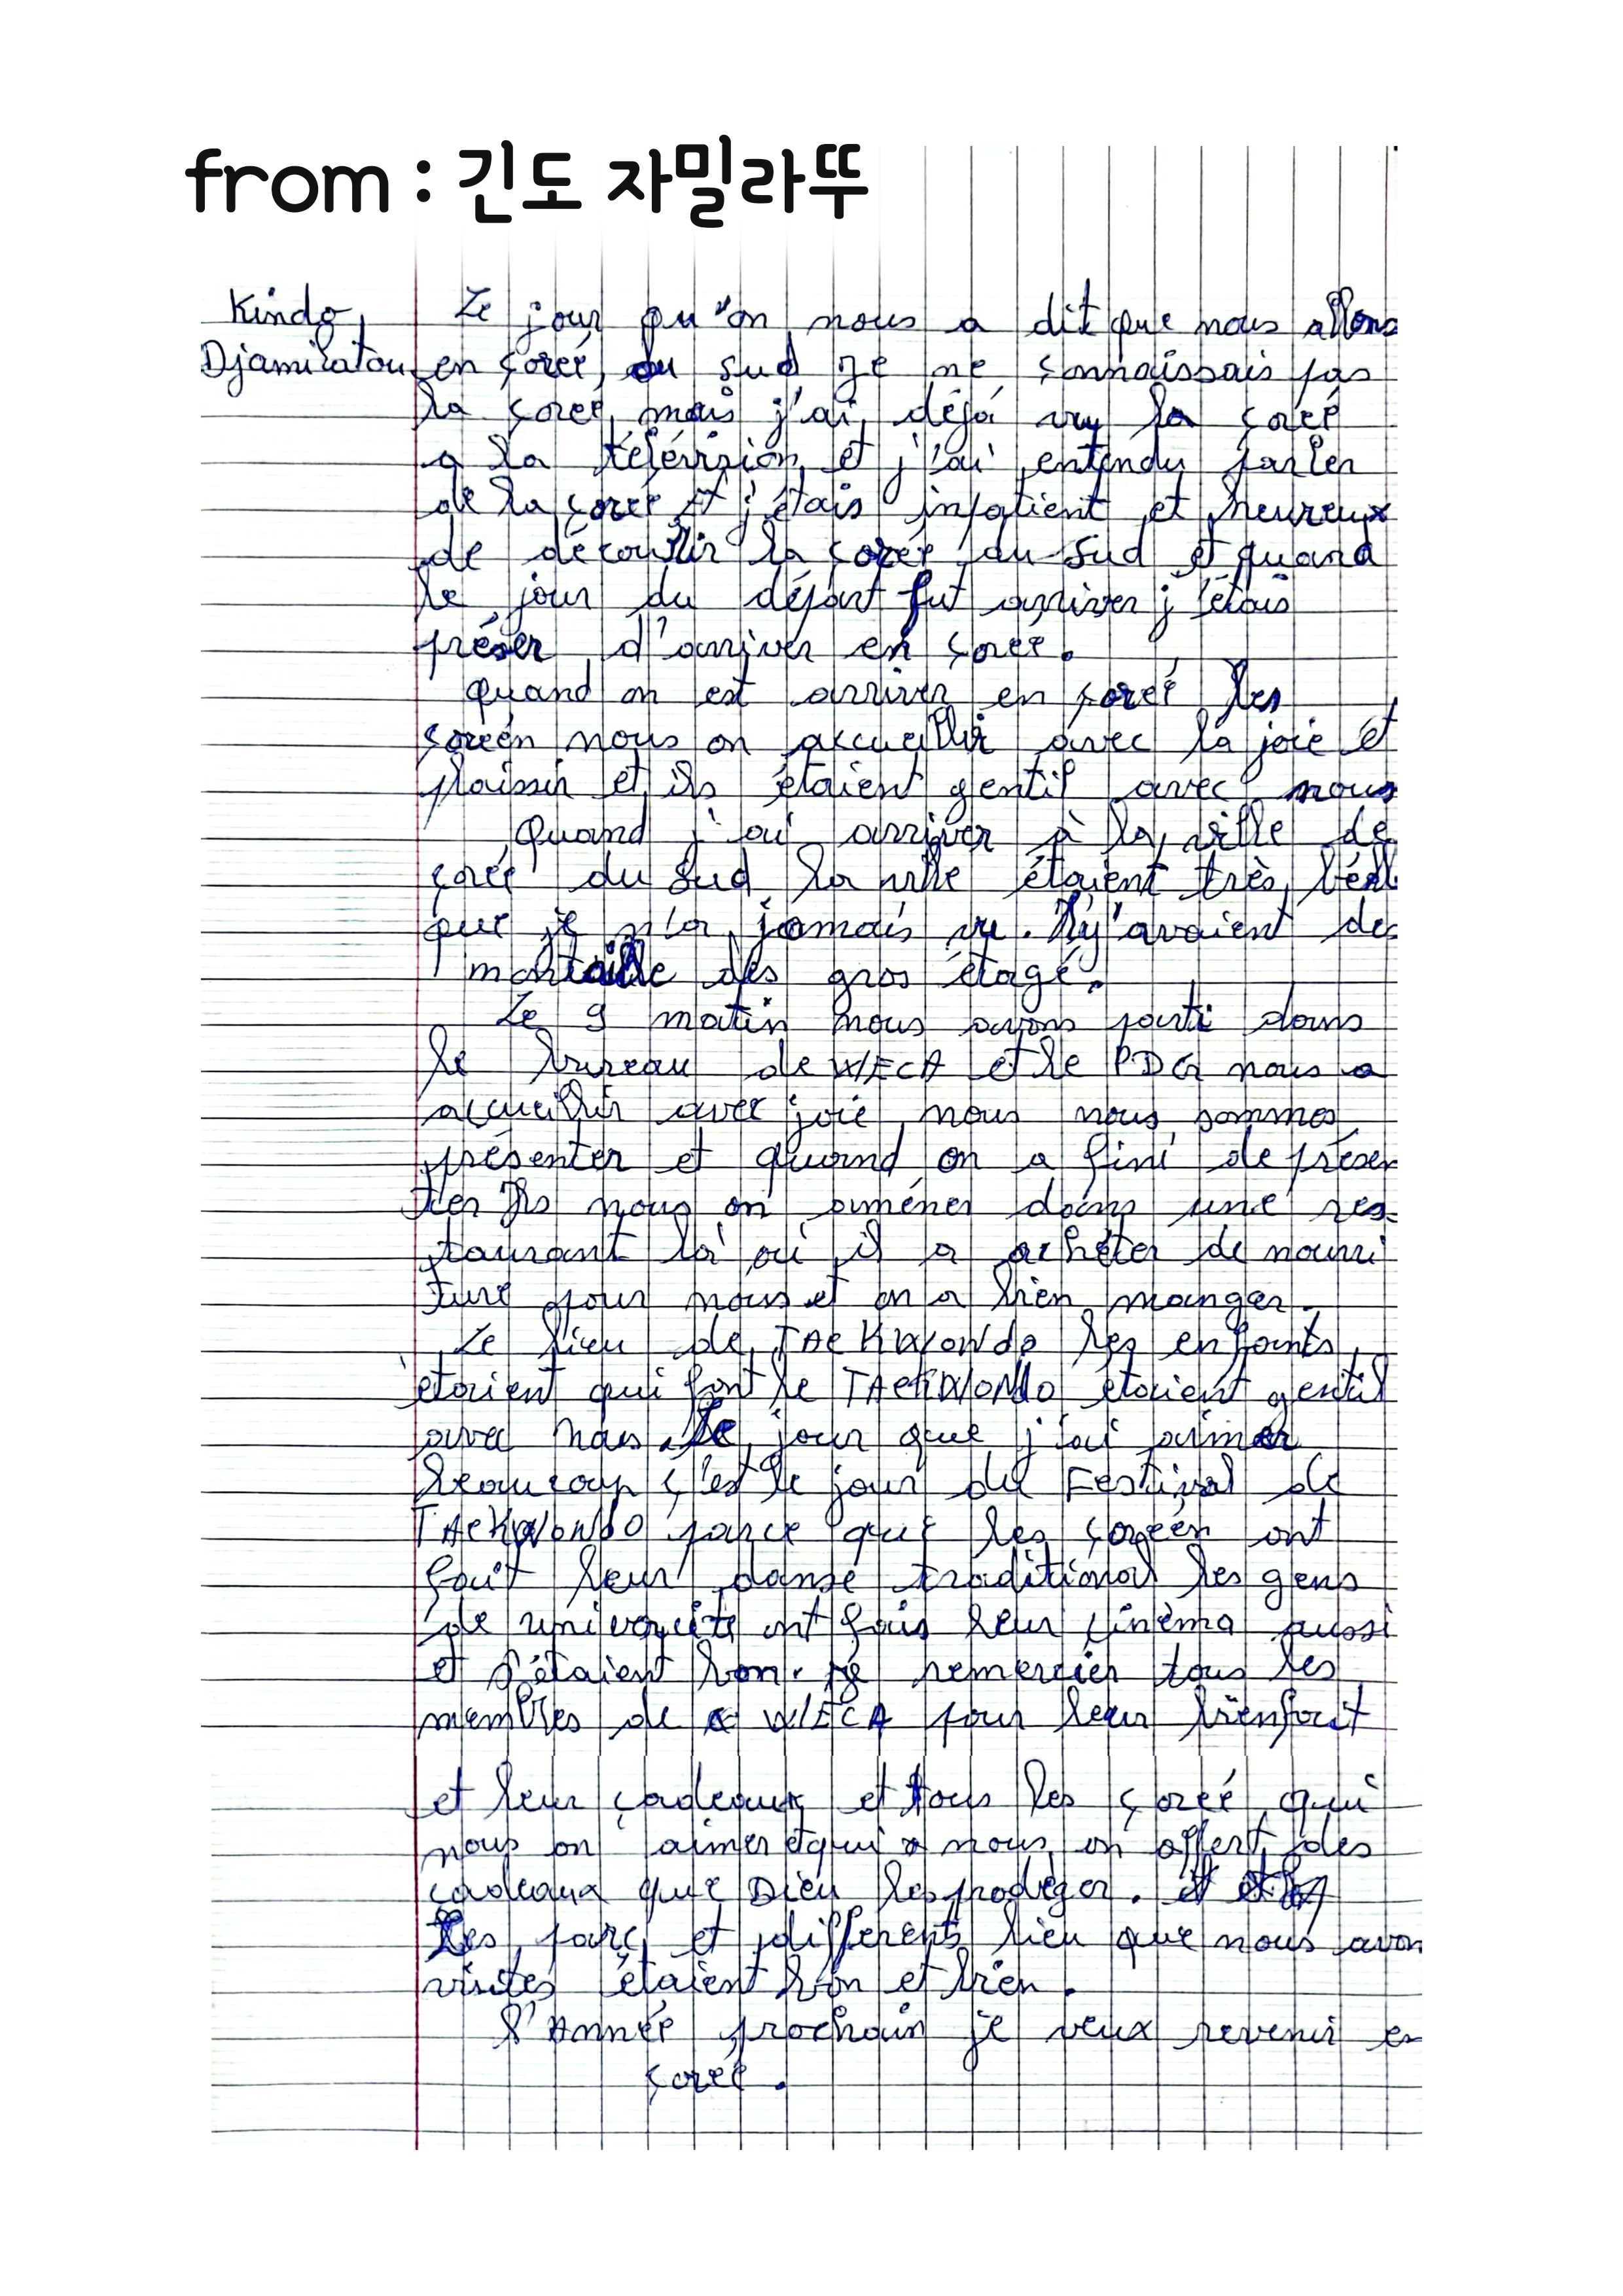 from : 긴도 자밀라뚜
Kindo
Djamilatou
Le jour qu'on nous a dit que nous allons
en çoreé, du sud je ne çonnaissais pas
la çoreé, mais j'ai déjà vu la çoreé
a la télévision et j'ai entendu parler
de la çoreé et j'étais inpatient et heureux
de découvrir la çoreé du sud et quand
le jour du départ fut arriver j'étais
préser d'arriver en çoreé.
quand on est arriver en çoreé les
çoreén nous on accueillir avec la joie et
plaissir et ils étaient gentil avec nous
Quand j'ai arriver à la ville de
çoreé du Sud la ville étaient très béll
que je n'a jamais vu. Il y'avaient des
des gros étagé.
Le 9 matin nous avons parti dans
le bureau de WECA et le PDG nous a
accueillir avec joie nous nous sommes
présenter et quand on a fini de présen
ter Ils nous on améner dans une res-
taurant là où il a achéter de nourri
ture pour nous et on a bien manger.
Le lieu de TAEKWONDO les enfants
étaient qui font le TAEKWONDO étaient gentil
avec nous. Le jour que j'ai aimer
beaucoup ç'est le jour du Festival de
TAEKWONDO parce que les çoreén ont
fait leur danse traditional les gens
de université ont fais leur çinéma aussi
et s'étaient bon. je remercier tous les
membres de WECA pour leur bienfait
et leur çadeaux et tous les çoreé qui
nous on aimer et qui nous on offert des
cadeaux que Dieu les prodéger.
Les parç et différents lieu que nous avon
visités étaient bon et bien.
L'Année prochain je veux revenir en
çoreé.